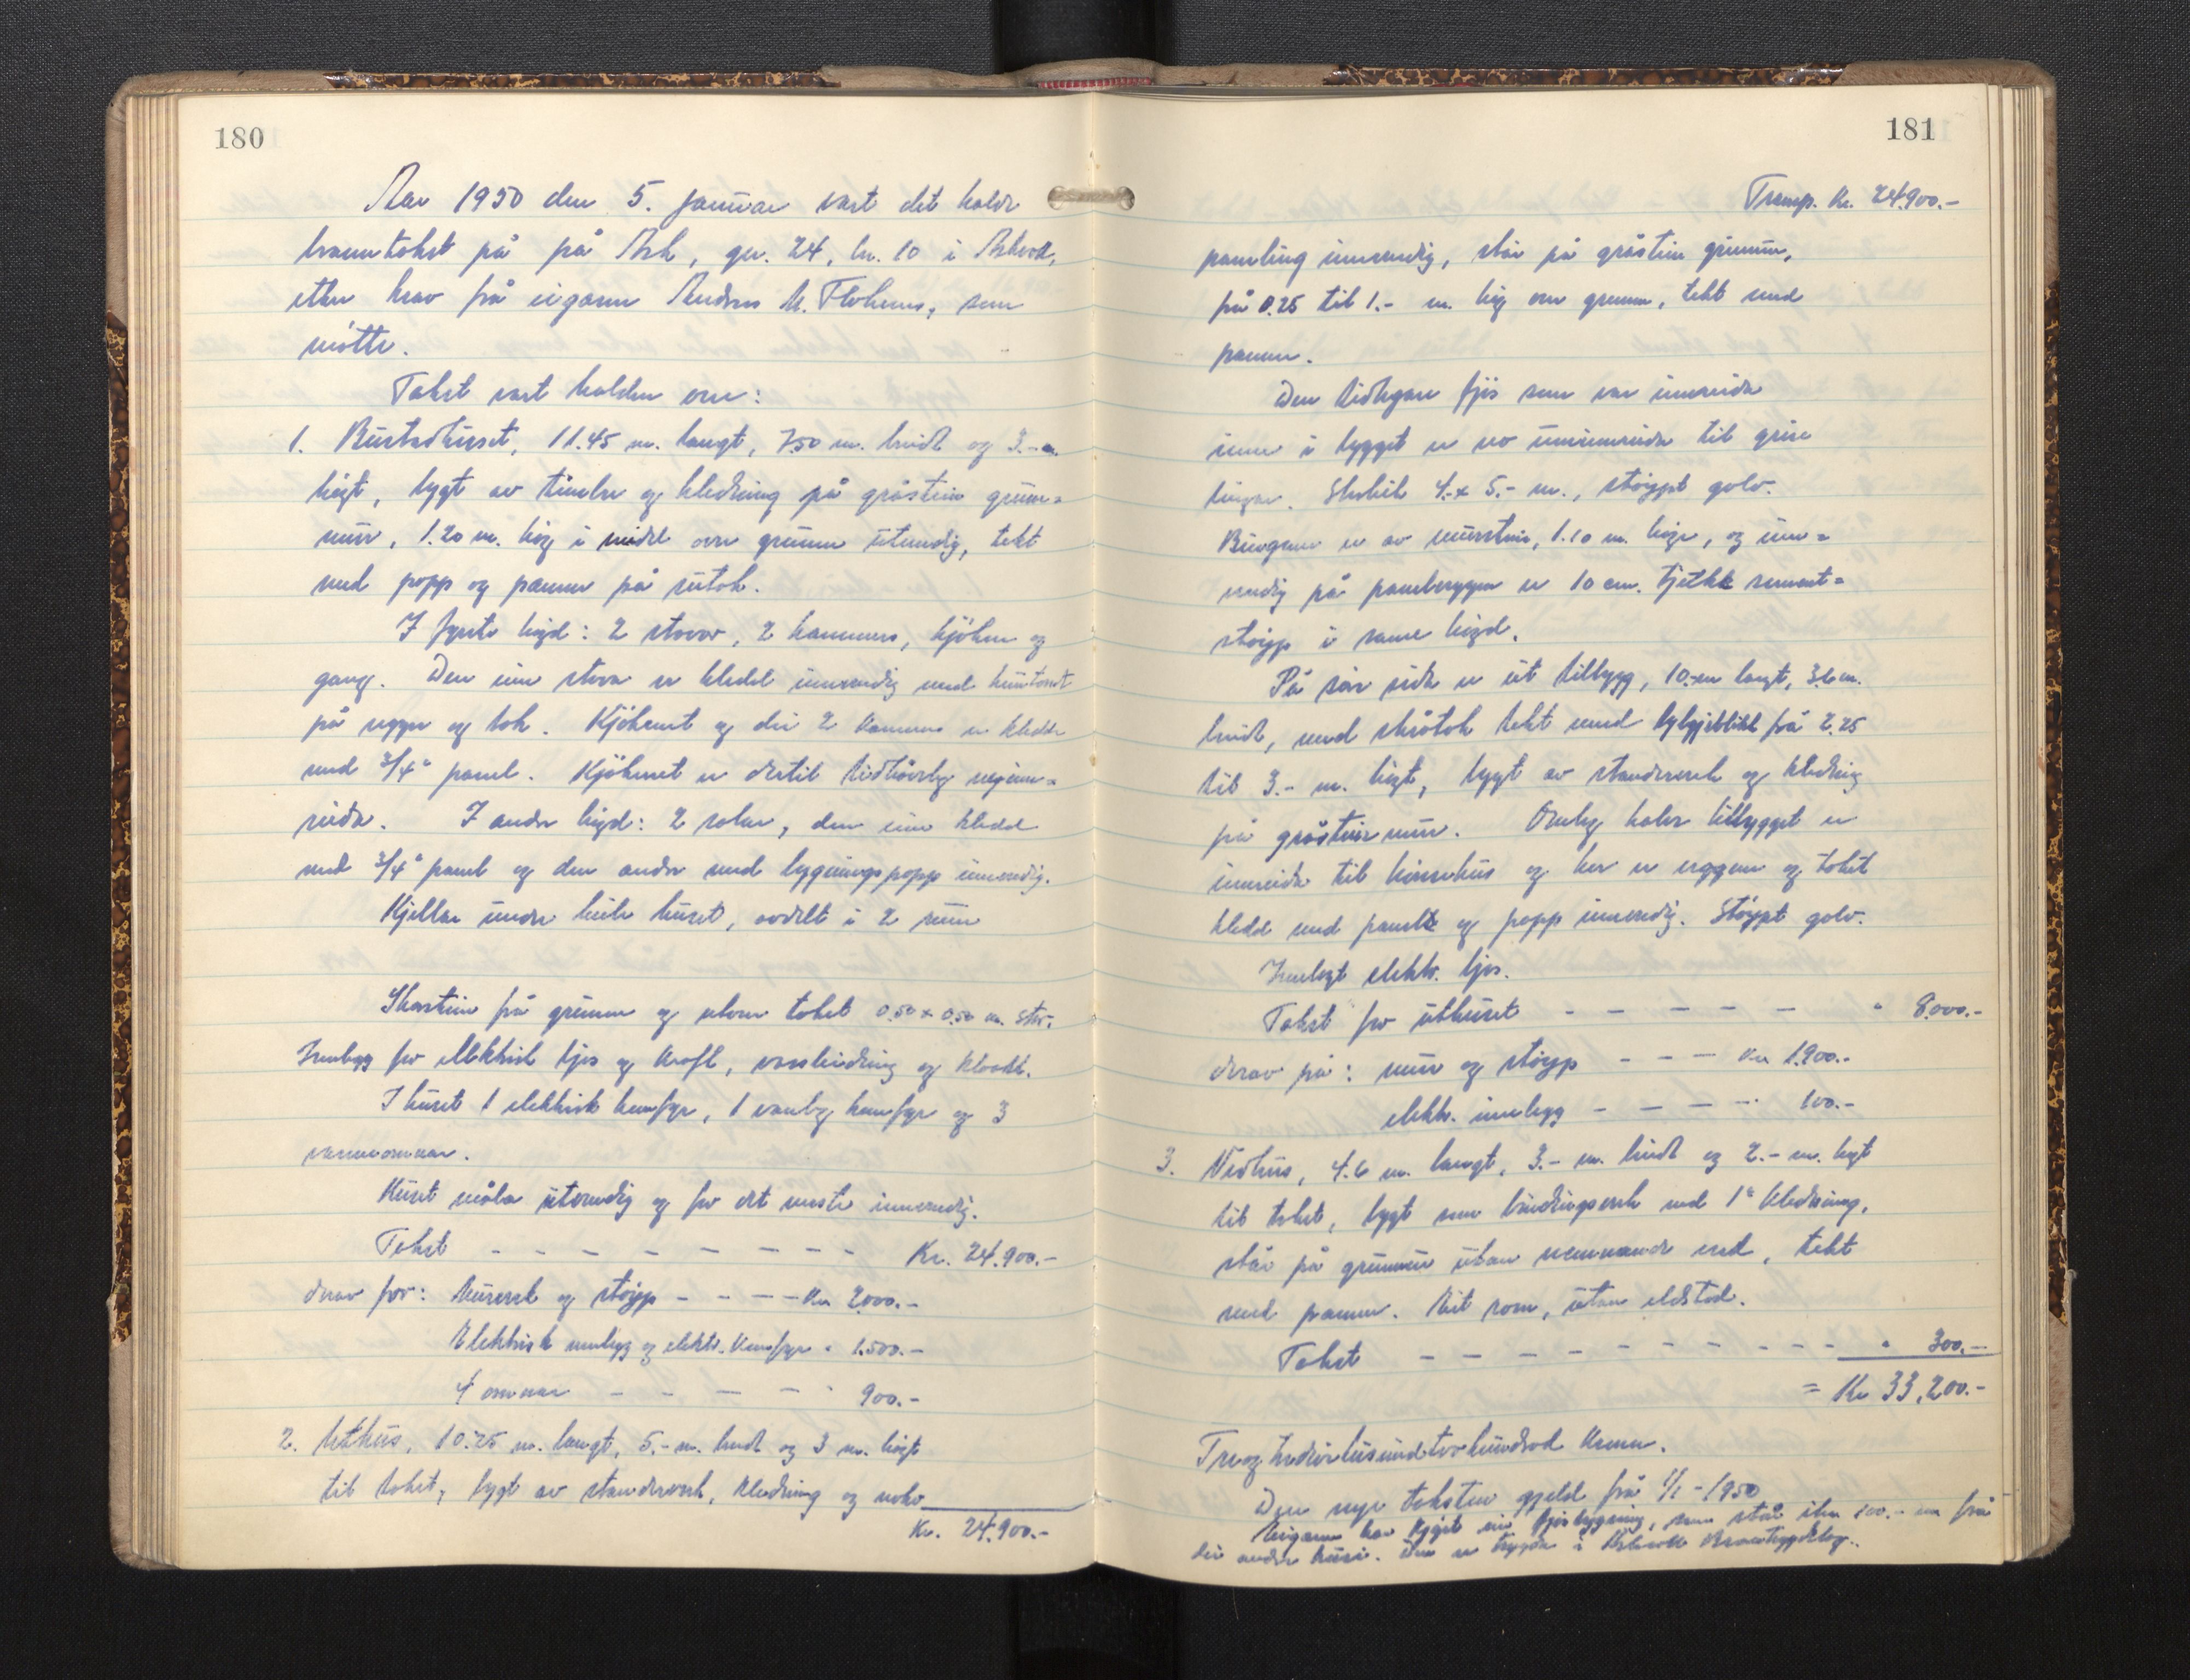 180
Aar 1950 den 5. januar vart det halde
branntakst på på Ask, gnr. 24, bn. 10 i Askvoll,
etter krav frå eigaren Andreas M. Flokenes, som
møtte.
Takst vart halden over:
1. Bustadhuset, 11.45 m. langt, 7.50 m. breidt og 3.- m.
høgt, bygt av timber og kledning på gråstein grunn-
mur, 1.20 m. høg i midel over grunnen utvendig, tekt
med papp og panner på sutak.
I fyrste høgd: 2 stover, 2 kammers, kjøken og
gang. Den eine stova er kledd innvendig med huntonit
på vegger og tak. Kjøkenet og dei 2 kammers er kledde
med 3/4" panel. Kjøkenet er dertil tidhøveleg nyinn-
reida. I andre høgd: 2 salar, den eine kledd
med 3/4" panel og den andre med bygningspapp innvendig.
Kjellar under heile huset, avdelt i 2 rum
Skorstein frå grunnen og utover taket 0.50 x 0.50 m. stor.
Innlegg for elektrisk ljos og kraft, vassleidning og kloakk.
I huset 1 elektrisk komfyr, 1 vanleg komfyr og 3
varmeomnar.
Huset måla utvendig og for det meste innvendig.
Takst - - - - - - - - - Kr. 24.900.-
derav for: murverk og støyp - - - - Kr 2000.-
Elektrisk innlegg og elektr. komfyr " 1.500.-
4 omnar - - - - - " 900.-
2. Uthus, 10.25 m. langt, 5.- m. breidt og 3 m. høgt
til taket, bygt av standverk, kledning og noko
Kr. 24.900.-
181
Transp. Kr. 24.900.-
paneling innvendig, står på gråstein grunnmur,
frå 0.25 til 1.- m. høg over grunnen, tekt med
panner.
Den tidlegare fjøs som var innreida
inne i bygget er no uminnreida til grise
bingar. Storleik 4.- x 5.- m., støypt golv.
Bingane er av murstein, 1.10 m. høge, og inn-
vendig på panelveggen er 10 cm. tjukk sement-
støyp i same høgd.
På eine sida er eit tilbygg, 10.- m langt, 3.6 m.
breidt, med skråtak tekt med bylgjeblikk frå 2.25
til 3.- m. høgt, bygt av standerverk og kledning
på gråsteinsmur. Omlag halve tilbygget er
innreida til hønsehus og her er veggene og taket
kledd med panel og papp innvendig. Støypt golv.
Innlagt elektr. ljos.
Takst for uthuset - - - - - - " 8.000.-
derav på: mur og støyp - - - Kr 1.900.-
elektr. innlegg - - - - " 100.-
3. Vedhus, 4.6 m. langt, 3.- m. breidt og 2.- m. høgt
til taket, bygt som bindingsverk med 1" kledning,
står på grunnmur utan nemnande verd, tekt
med panner. Eit rom, utan eldstad.
Takst - - - - - - - - - - " 300.-
= Kr 33.200.-
Treogtredivetusundtvohundrad kroner.
Den nye taksten gjeld frå 1/1 - 1950
Eigaren har kjøpt ein fjøsbygning, som står ikr. 100.- m frå
dei andre husi. Den er trygda i Askvoll Branntrygdelag.